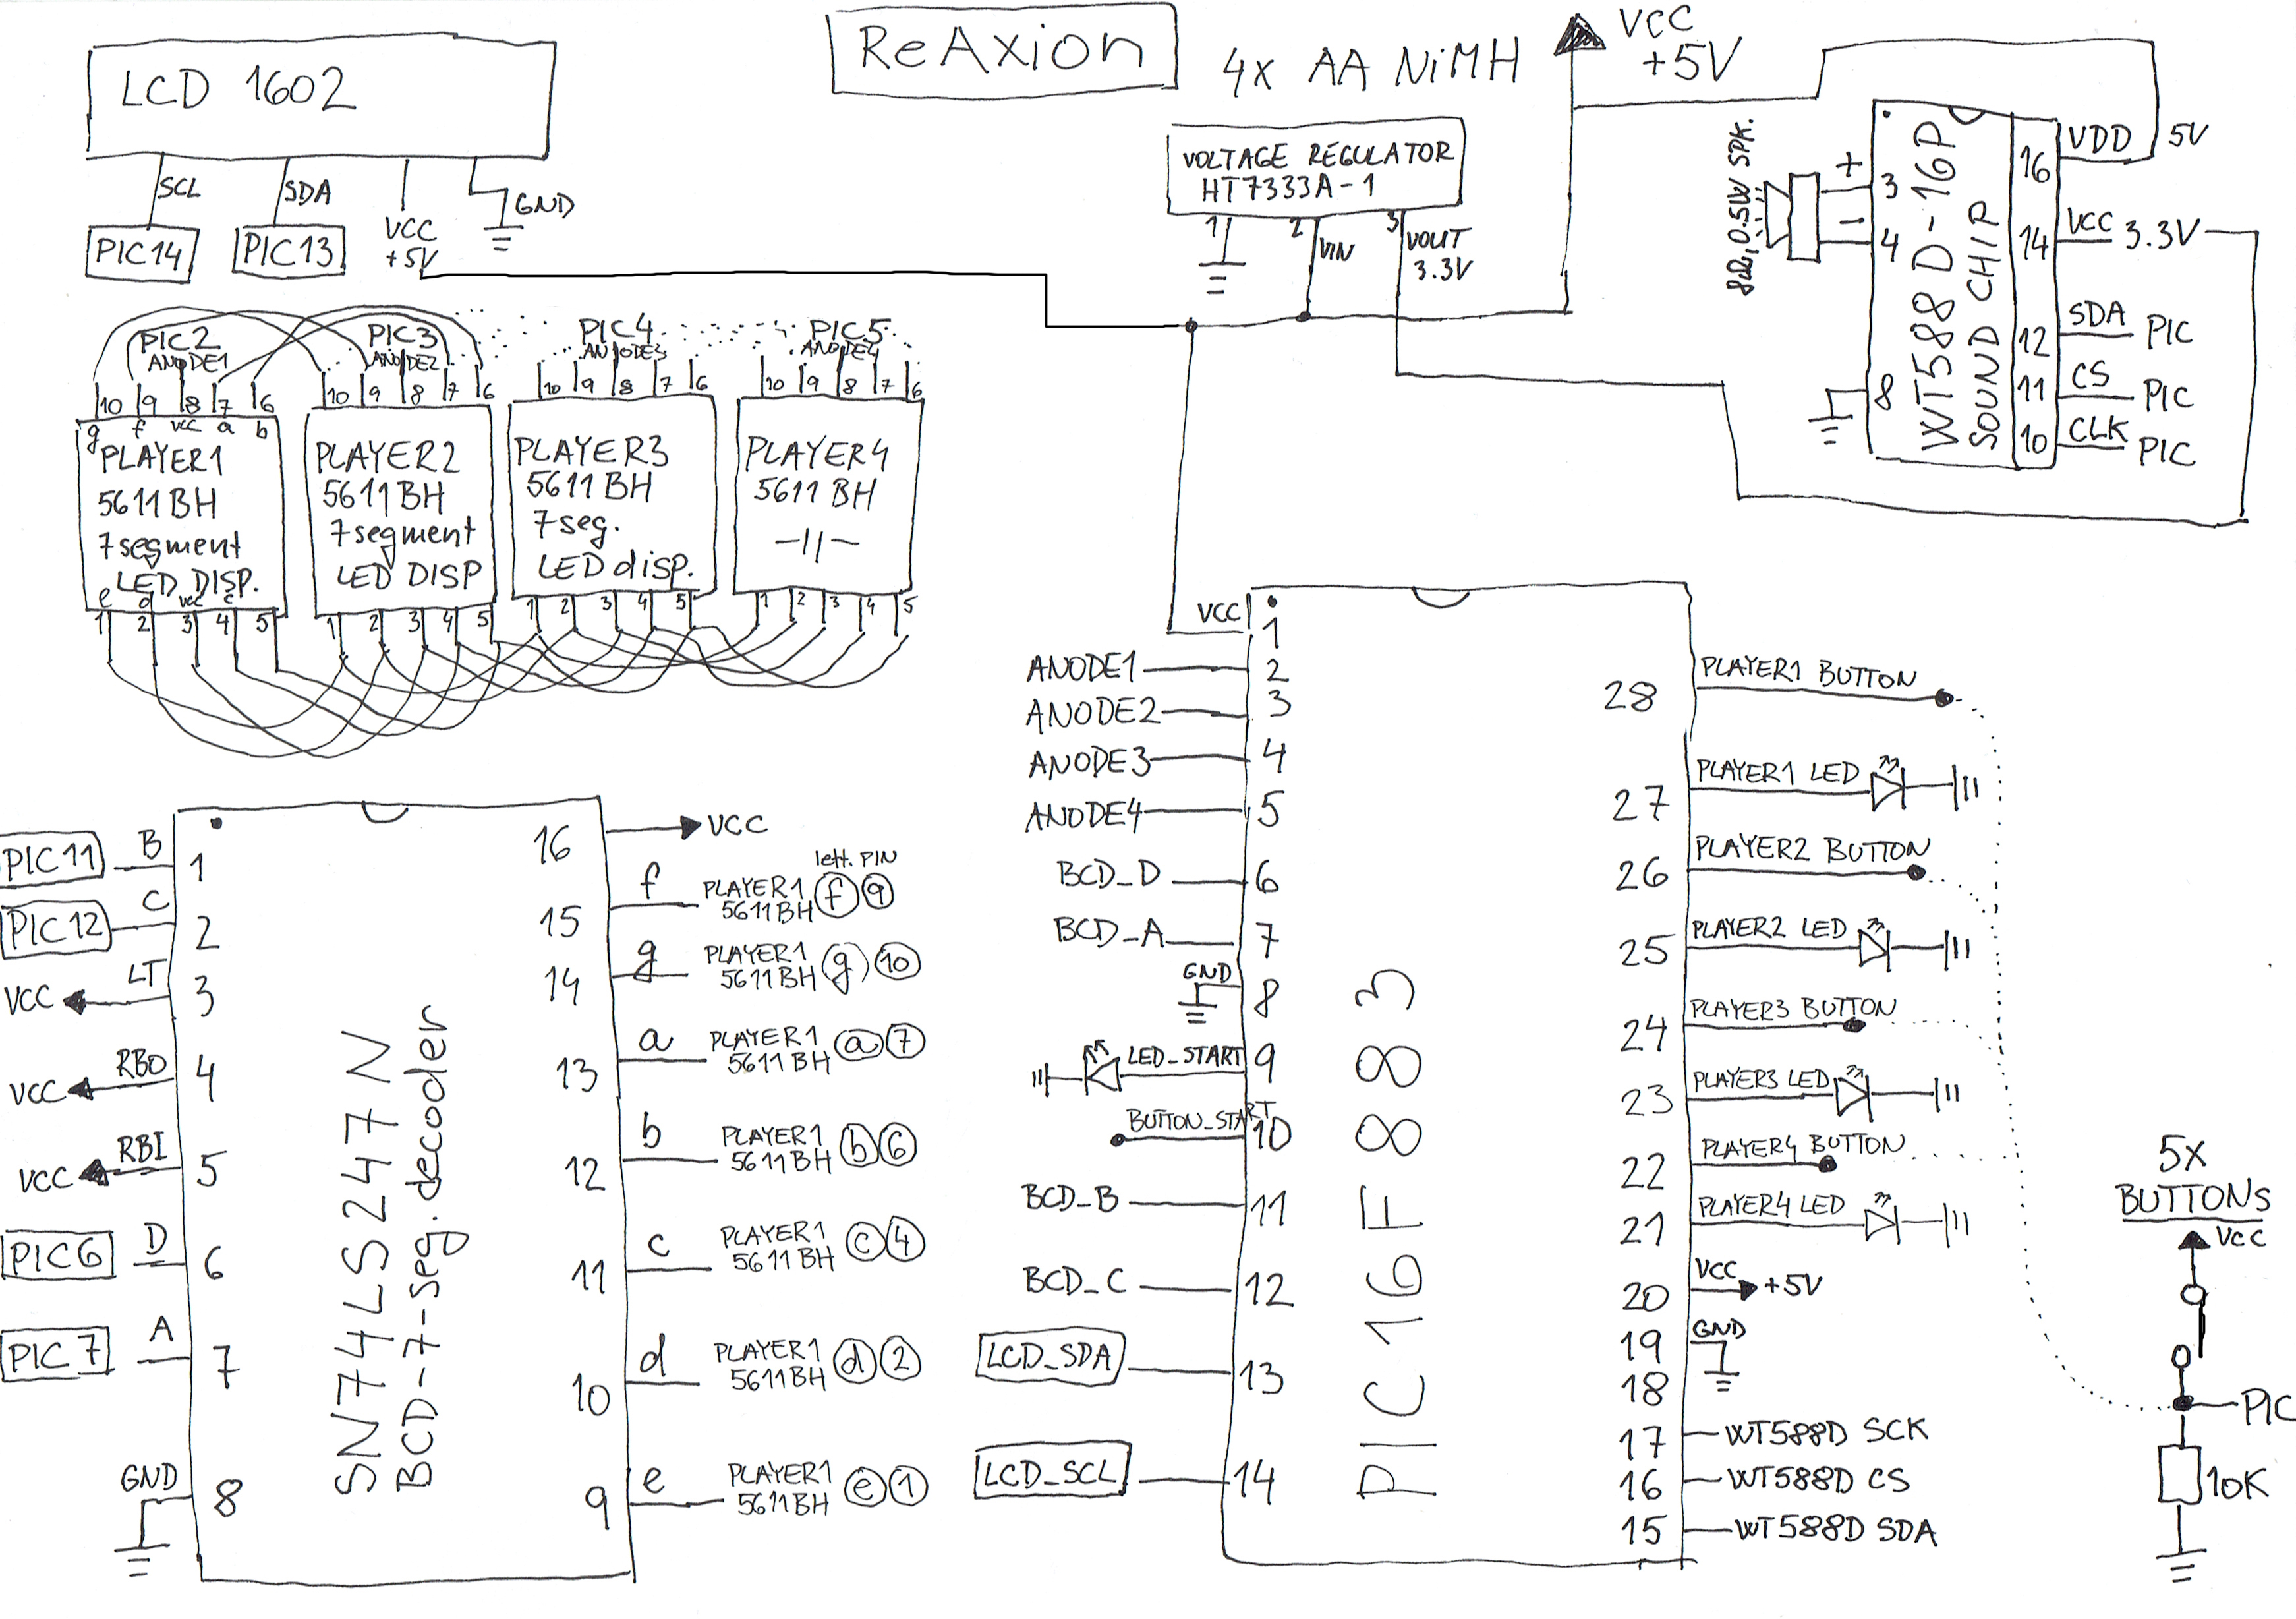 ReAxion
4x AA NiMH
VCC
+5V
LCD 1602
SCL
SDA
GND
PIC14
PIC13
VCC
+5V
VOLTAGE REGULATOR
HT7333A-1
1
2
3
VIN
VOUT
3.3V
8Ω, 0.5W SPK.
+
-
3
4
8
WT588D-16P
SOUND CHIP
16
VDD
5V
14
VCC
3.3V
12
SDA
PIC
11
CS
PIC
10
CLK
PIC
PIC2
ANODE1
PIC3
ANODE2
PIC4
ANODE3
PIC5
ANODE4
10 9 8 7 6
10 9 8 7 6
10 9 8 7 6
10 9 8 7 6
g f vcc a b
PLAYER1
5611BH
7segment
LED DISP.
e d vcc c
1 2 3 4 5
PLAYER2
5611BH
7segment
LED DISP
1 2 3 4 5
PLAYER3
5611BH
7seg.
LED disp.
1 2 3 4 5
PLAYER4
5611BH
-||-
1 2 3 4 5
SN74LS247N
BCD-7-seg.decoder
PIC11 B 1
PIC12 C 2
VCC LT 3
VCC RBO 4
VCC RBI 5
PIC6 D 6
PIC7 A 7
GND 8
16 VCC
lett. PIN
15 f PLAYER1
5611BH f 9
14 g PLAYER1
5611BH g 10
13 a PLAYER1
5611BH a 7
12 b PLAYER1
5611BH b 6
11 c PLAYER1
5611BH c 4
10 d PLAYER1
5611BH d 2
9 e PLAYER1
5611BH e 1
PIC16F883
VCC 1
ANODE1 2
ANODE2 3
ANODE3 4
ANODE4 5
BCD_D 6
BCD_A 7
GND 8
LED_START 9
BUTTON_START 10
BCD_B 11
BCD_C 12
LCD_SDA 13
LCD_SCL 14
28 PLAYER1 BUTTON
27 PLAYER1 LED
26 PLAYER2 BUTTON
25 PLAYER2 LED
24 PLAYER3 BUTTON
23 PLAYER3 LED
22 PLAYER4 BUTTON
21 PLAYER4 LED
20 VCC +5V
19 GND
18
17 WT588D SCK
16 WT588D CS
15 WT588D SDA
5X
BUTTONS
VCC
PIC
10K